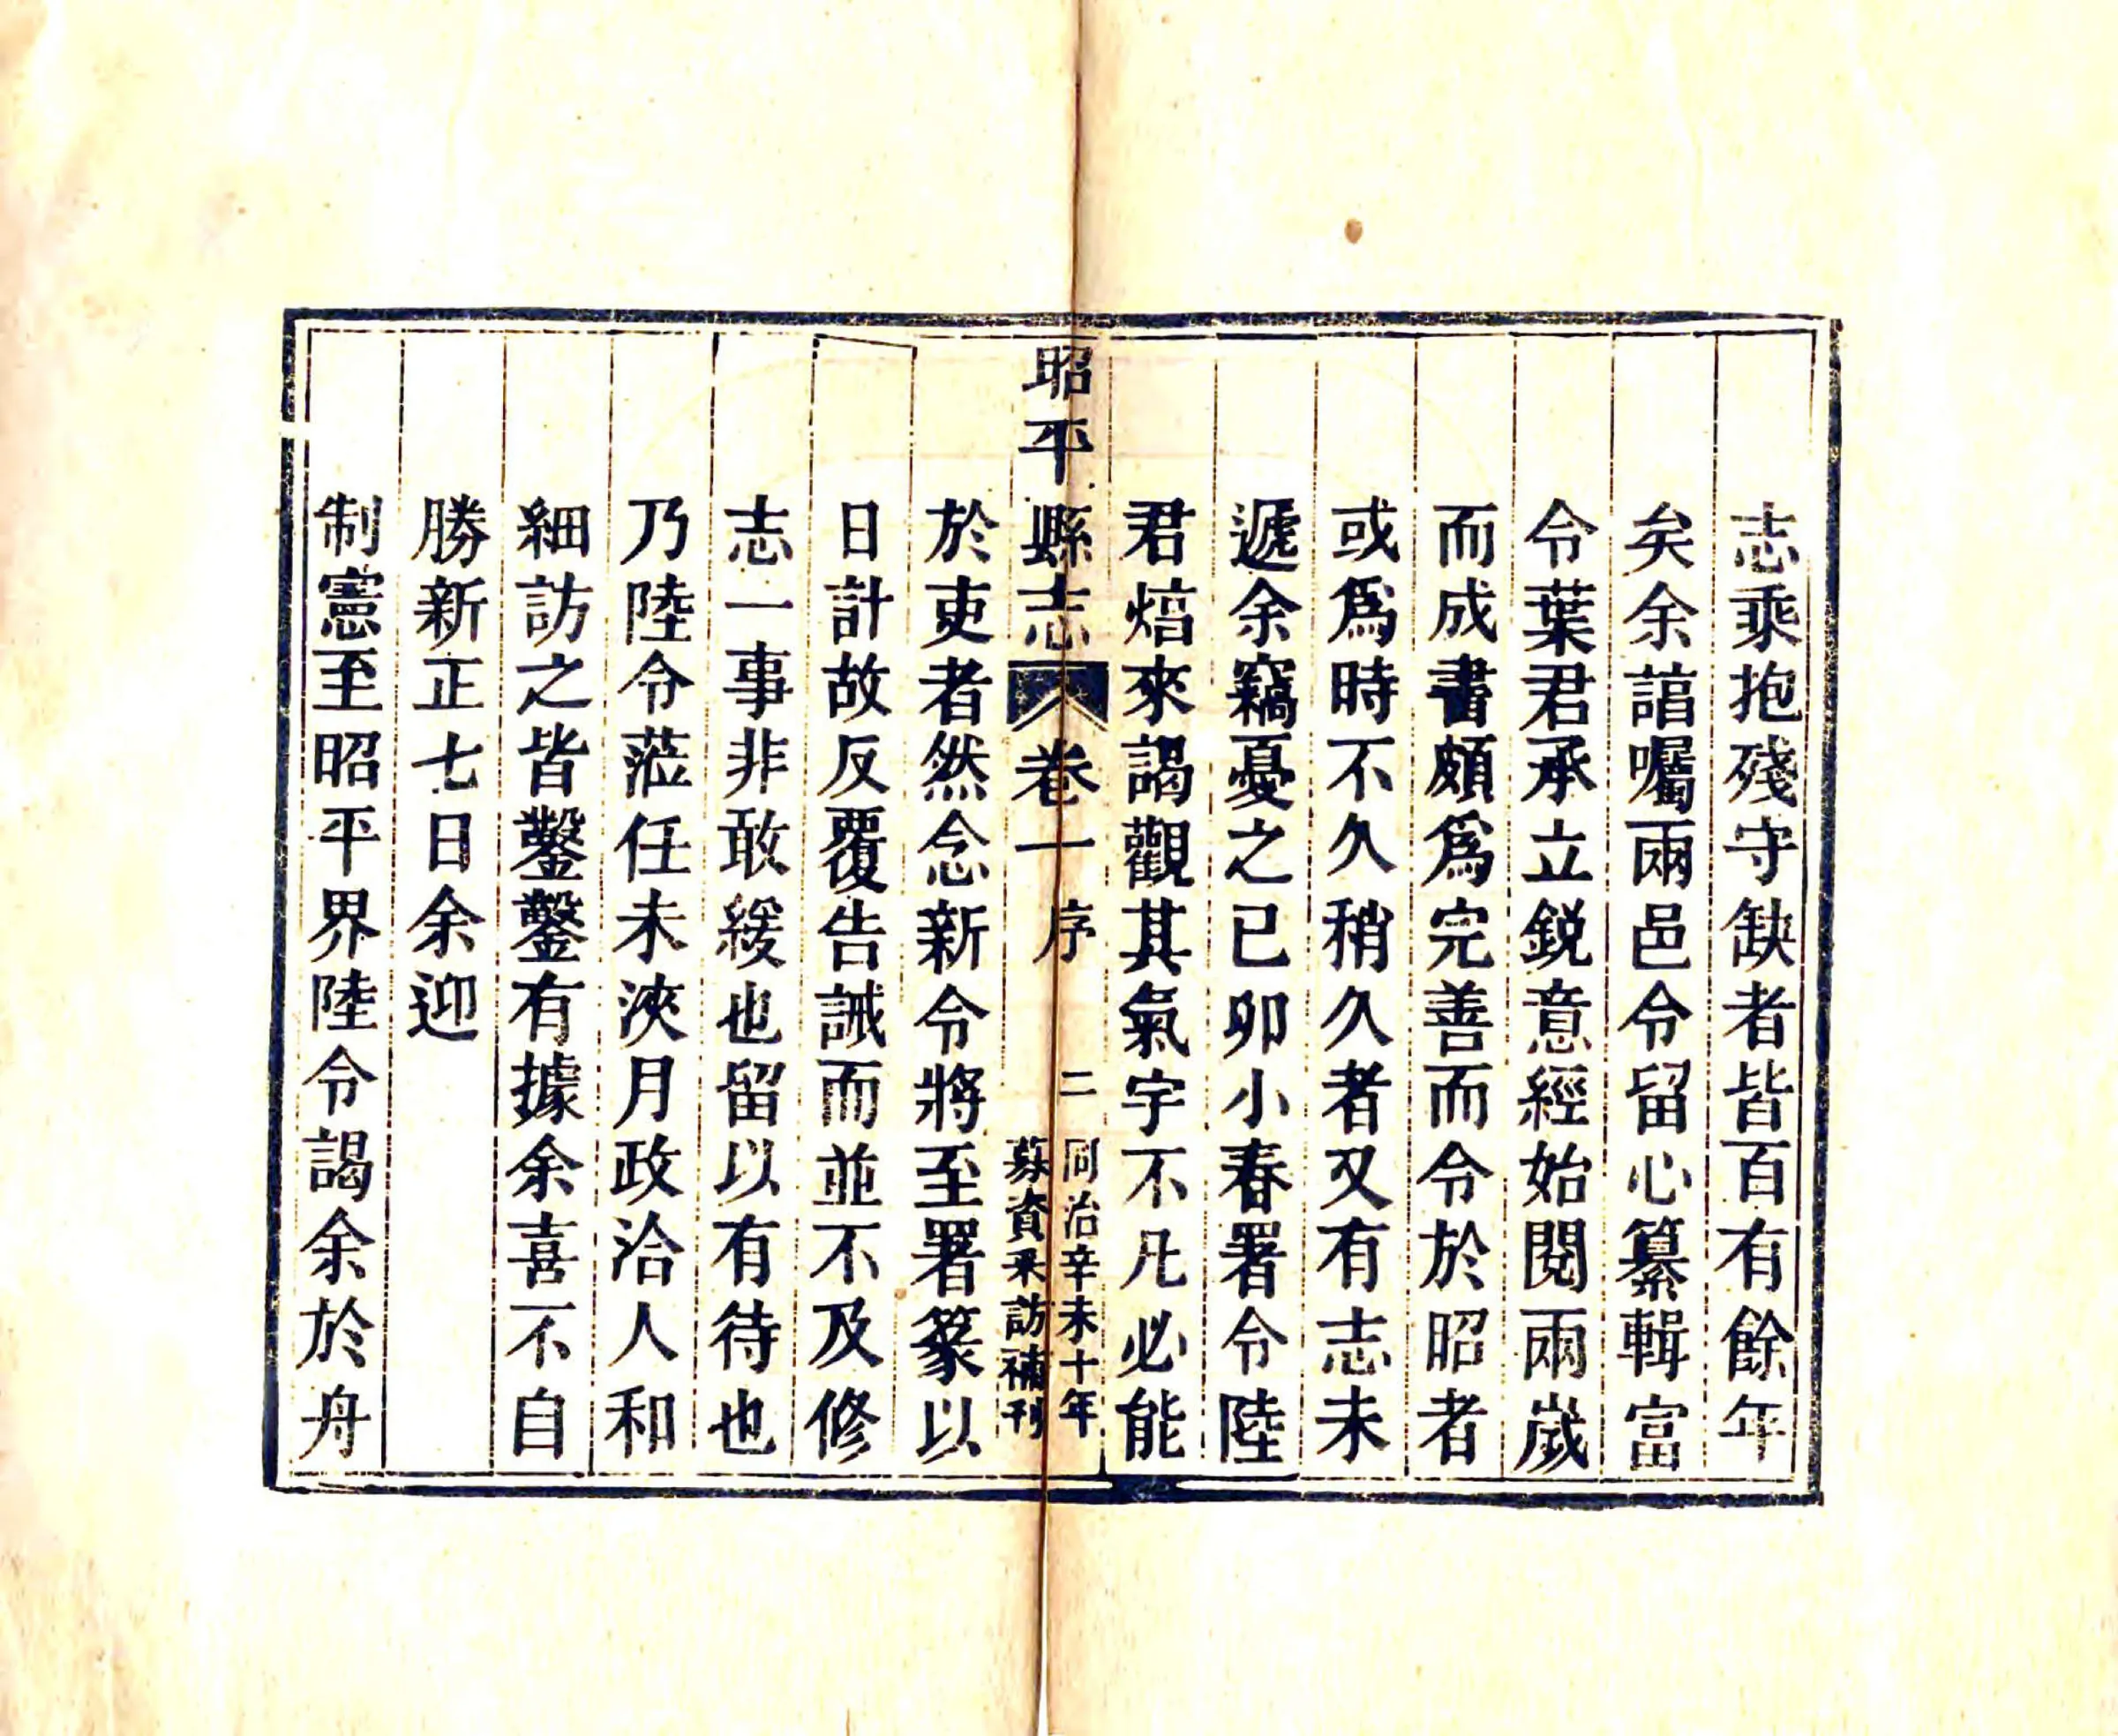 志乘抱殘守缺者皆百有餘年
矣余諳囑兩邑令留心纂輯富
令葉君承立鋭意經始閱兩歲
而成書頗爲完善而令於昭者
或爲時不久稍久者又有志未
遞余竊憂之已卯小春署令陸
君焙來謁觀其氣宇不凡必能
昭平縣志 卷一 序 二 同治辛未十年
募資采訪補刊
於吏者然念新令將至署篆以
日計故反覆告誡而並不及修
志一事非敢緩也留以有待也
乃陸令蒞任未浹月政洽人和
細訪之皆鑿鑿有據余喜不自
勝新正七日余迎
制憲至昭平界陸令謁余於舟